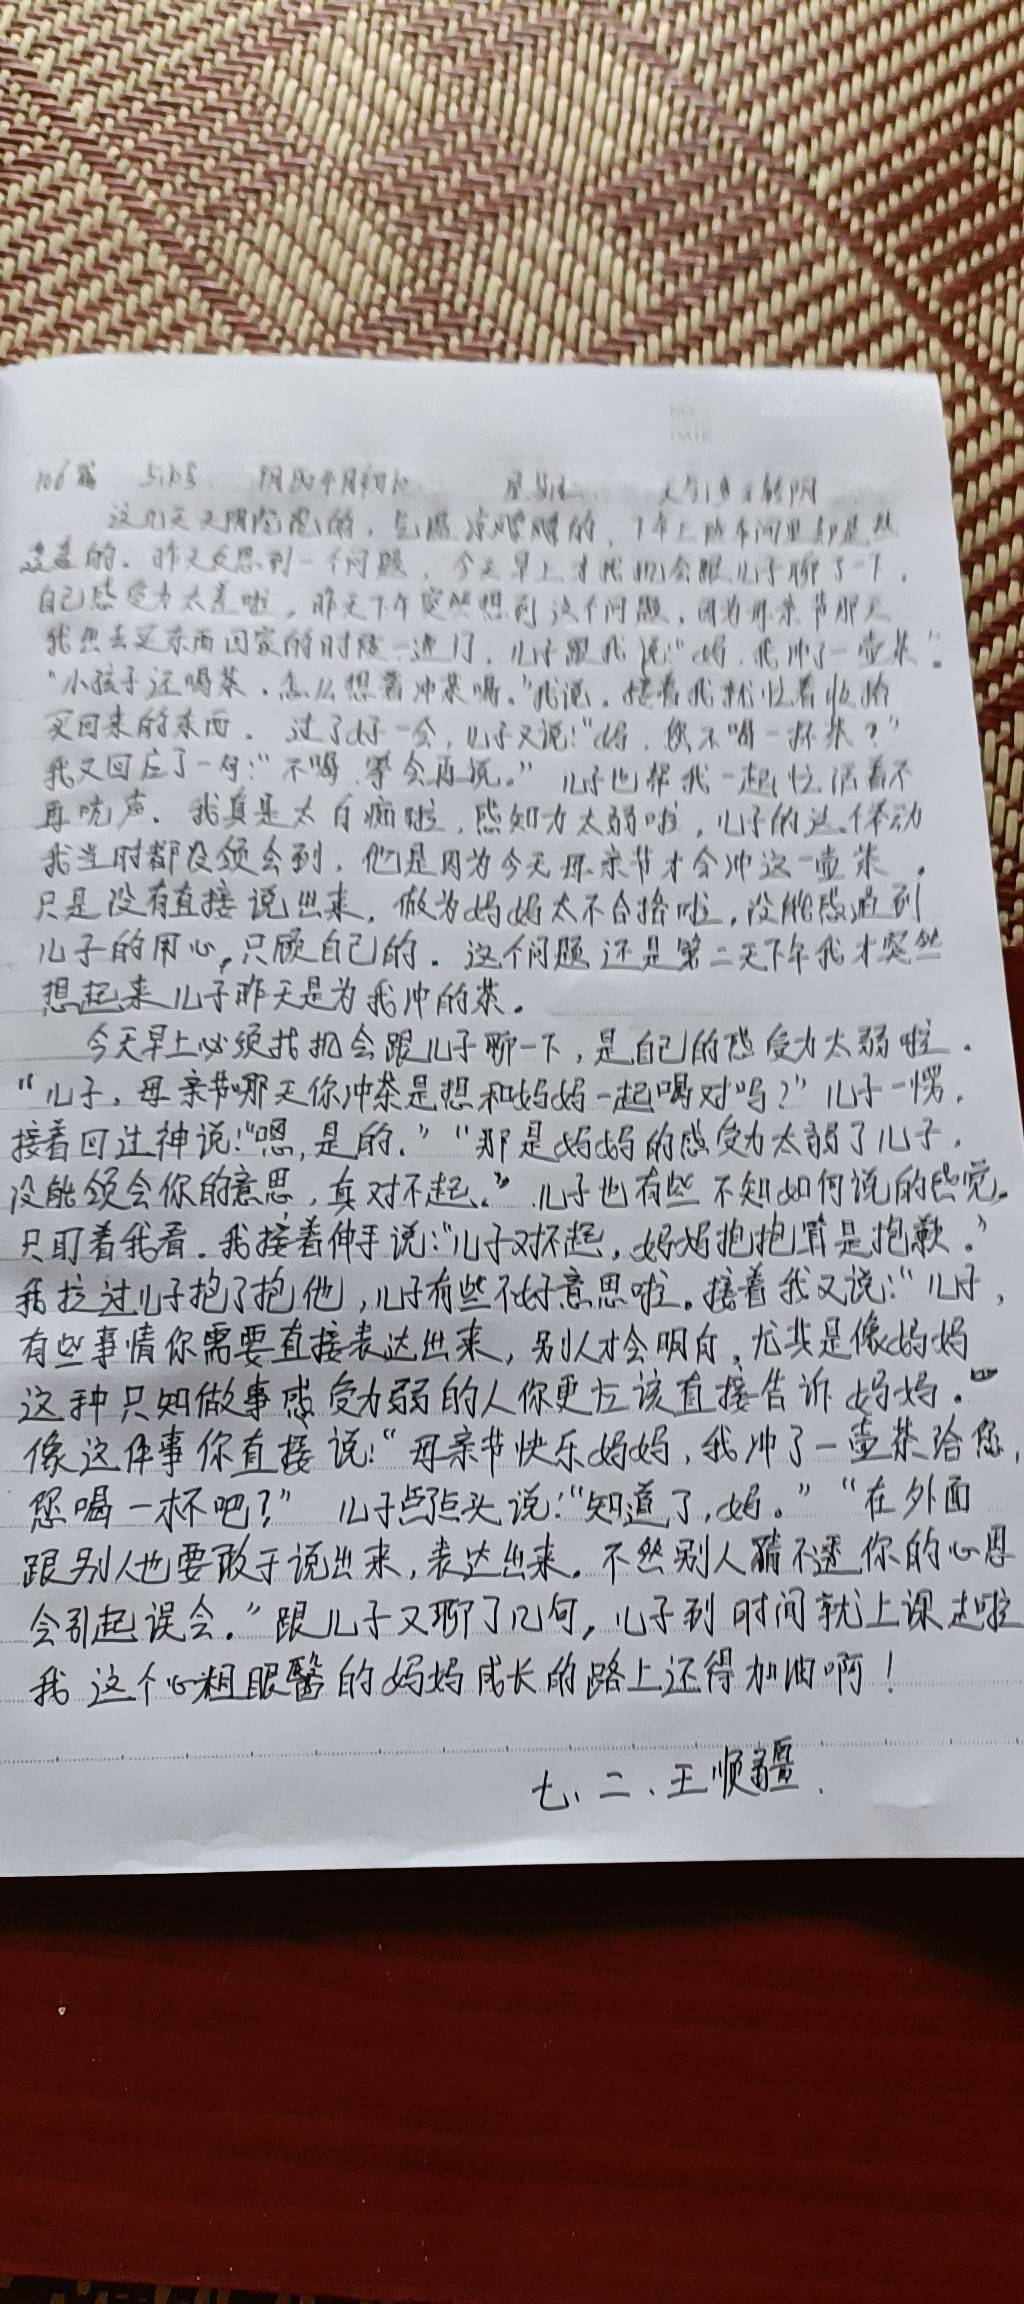 106篇
这几天天阴沉沉的，气温凉嗖嗖的，
的。昨天反思到一个问题，今天早上才找机会跟儿子聊了一下，
自己感受力太差啦，昨天下午突然想到这个问题，因为母亲节那天
我出去买东西回家的时候一进门，儿子跟我说“妈，我冲了一壶茶”。
“小孩子还喝茶，怎么想着冲茶喝。”我说。接着我就忙着收拾
买回来的东西。过了好一会，儿子又说：“妈，您不喝一杯茶？”
我又回应了一句：“不喝，等会再说。”儿子也帮我一起忙活着不
再吭声。我真是太白痴啦，感知力太弱啦，儿子的这一举动
我当时都没领会到，他是因为今天母亲节才会冲这一壶茶，
只是没有直接说出来，做为妈妈太不合格啦，没能感过到
儿子的用心，只顾自己的。这个问题还是第二天下午我才突然
想起来儿子昨天是为我冲的茶。
今天早上必须找机会跟儿子聊一下，是自己的感受力太弱啦。
“儿子，母亲节哪天你冲茶是想和妈妈一起喝对吗？”儿子一愣，
接着回过神说：“嗯，是的。”“那是妈妈的感受力太弱了儿子，
没能领会你的意思，真对不起。”儿子也有些不知如何说的感觉。
只盯着我看。我接着伸手说：“儿子对不起，妈妈抱抱算是抱歉。”
我拉过儿子抱了抱他，儿子有些不好意思啦。接着我又说：“儿子，
有些事情你需要直接表达出来，别人才会明白，尤其是像妈妈
这种只知做事感受力弱的人你更应该直接告诉妈妈。
像这件事你直接说：“母亲节快乐妈妈，我冲了一壶茶给您，
您喝一杯吧？”儿子点点头说：“知道了，妈。”“在外面
跟别人也要敢于说出来，表达出来。不然别人猜不透你的心思
会引起误会。”跟儿子又聊了几句，儿子到时间就上课走啦
我这个心粗眼瞖的妈妈成长的路上还得加油啊！
七、二、王顺疆.